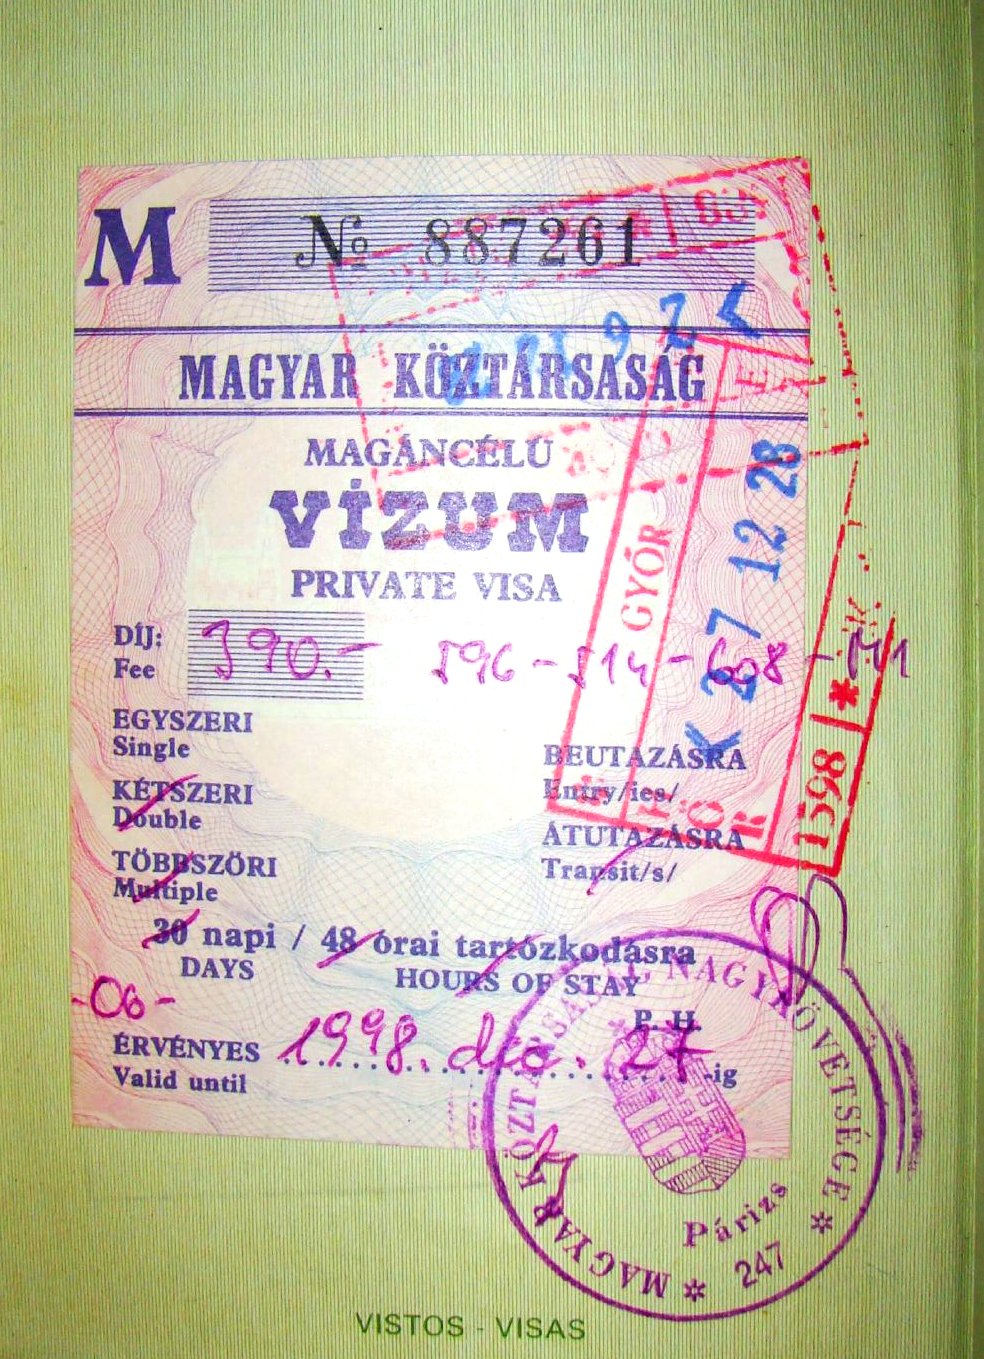 M
№ 887261
MAGYAR KÖZTÁRSASÁG
MAGÁNCÉLÚ
VÍZUM
PRIVATE VISA
DÍJ:
Fee
390.-
596-514-608-
EGYSZERI
Single
KÉTSZERI
Double
TÖBBSZÖRI
Multiple
BEUTAZÁSRA
Entry/ies/
ÁTUTAZÁSRA
Transit/s/
30 napi / 48 órai tartózkodásra
DAYS HOURS OF STAY
P. H.
-06-
ÉRVÉNYES 1998. dec. 27 -ig
Valid until
GYŐR
K 27 12 28
1598 *
MAGYAR KÖZTÁRSASÁG NAGYKÖVETSÉGE
Párizs
* 247 *
VISTOS - VISAS